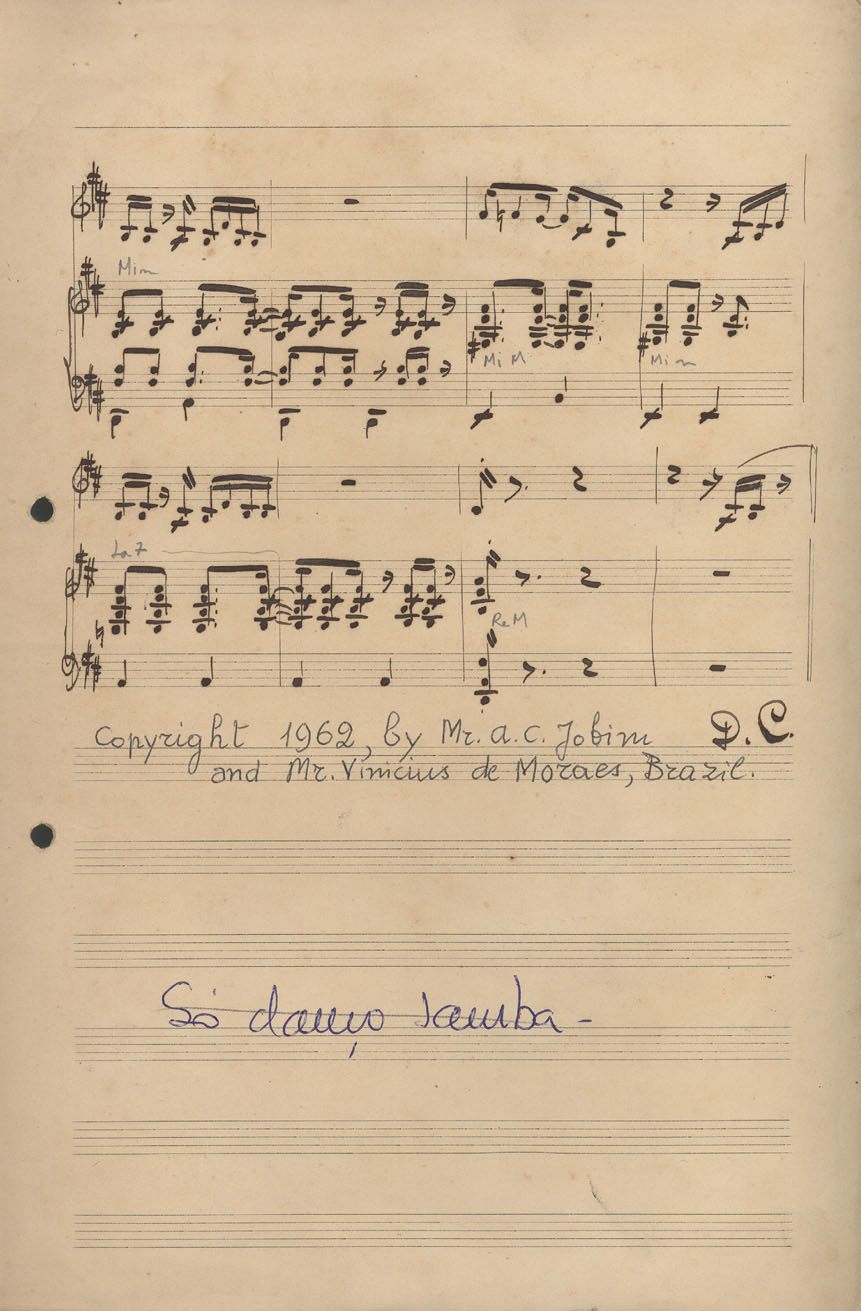 Mim
Mi M
Mi m
La 7
Re M
Copyright 1962, by Mr. A. C. Jobim
D. C.
and Mr. Vinicius de Moraes, Brazil.
Só danço samba -